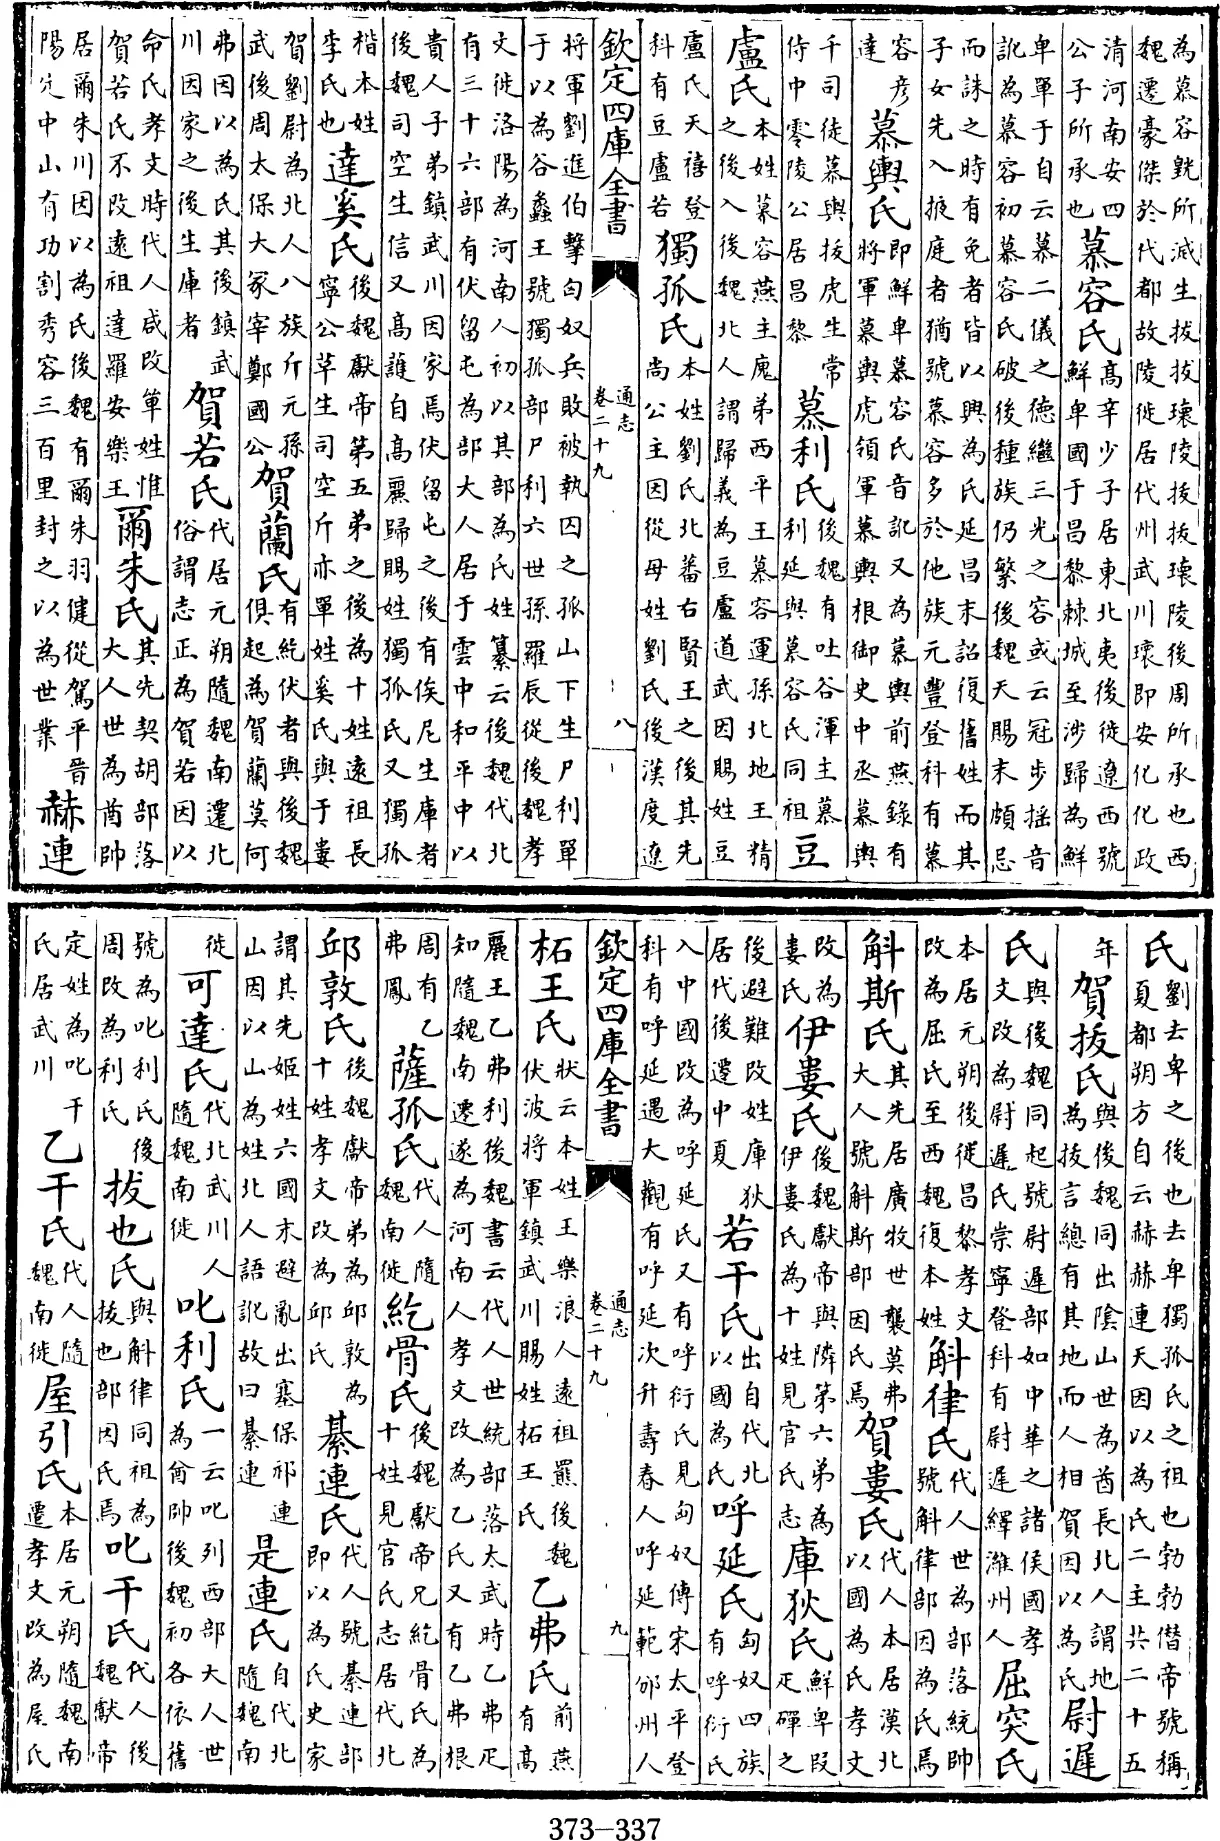 為慕容皝所滅生拔拔瓌陵拔拔瓌陵後周所承也西魏遷豪傑於代都故陵徙居代州武川瓌即安化化政
清河南安四公子所承也慕容氏高辛少子居東北夷後徙遼西號鮮卑國于昌黎棘城至涉歸為鮮
卑單于自云慕二儀之德繼三光之容或云冠步揺音訛為慕容初慕容氏破後種族仍繁後魏天賜末頗忌
而誅之時有免者皆以輿為氏延昌末詔復舊姓而其子女先入掖庭者猶號慕容多於他族元豐登科有慕
容彦達慕輿氏即鮮卑慕容氏音訛又為慕輿前燕錄有將軍慕輿虎領軍慕輿根御史中丞慕輿
千司徒慕輿拔虎生常侍中零陵公居昌黎慕利氏後魏有吐谷渾主慕利延與慕容氏同祖豆
盧氏本姓慕容燕主廆弟西平王慕容運孫北地王精之後入後魏北人謂歸義為豆盧道武因賜姓豆
盧氏天禧登科有豆盧若獨孤氏本姓劉氏北蕃右賢王之後其先尚公主因從母姓劉氏後漢度遼
欽定四庫全書 通志卷二十九 八
將軍劉進伯擊匈奴兵敗被執囚之孤山下生尸利單于以為谷蠡王號獨孤部尸利六世孫羅辰從後魏孝
文徙洛陽為河南人初以其部為氏姓纂云後魏代北有三十六部有伏留屯為部大人居于雲中和平中以
貴人子弟鎮武川因家焉伏留屯之後有俟尼生庫者後魏司空生信又髙䕶自髙麗歸賜姓獨孤氏又獨孤
楷本姓李氏也達奚氏後魏獻帝第五弟之後為十姓遠祖長寧公革生司空斤亦單姓奚氏與于婁
賀劉尉為北人八族斤元孫武後周太保大冢宰鄭國公賀蘭氏有紇伏者與後魏俱起為賀蘭莫何
弗因以為氏其後鎮武川因家之後生庫者賀若氏代居元朔隨魏南遷北俗謂志正為賀若因以
命氏孝文時代人咸改單姓惟賀若氏不改遠祖達羅安樂王爾朱氏其先契胡部落大人世為酋帥
居爾朱川因以為氏後魏有爾朱羽健從駕平晉陽定中山有功割秀容三百里封之以為世業赫連
氏劉去卑之後也去卑獨孤氏之祖也勃勃僭帝號稱夏都朔方自云赫赫連天因以為氏二主共二十五
年賀拔氏與後魏同出隂山世為酋長北人謂地為拔言總有其地而人相賀因以為氏尉遲
氏與後魏同起號尉遲部如中華之諸侯國孝文改為尉遲氏崇寧登科有尉遲繹濰州人屈突氏
本居元朔後徙昌黎孝文改為屈氏至西魏復本姓斛律氏代人世為部落統帥號斛律部因為氏焉
斛斯氏其先居廣牧世襲莫弗大人號斛斯部因氏焉賀婁氏代人本居漠北以國為氏孝文
改為婁氏伊婁氏後魏獻帝與隣第六弟為伊婁氏為十姓見官氏志庫狄氏鮮卑叚疋磾之
後避難改姓庫狄居代後遷中夏若干氏出自代北以國為氏呼延氏匈奴四族有呼衍氏
入中國改為呼延氏又有呼衍氏見匈奴傳宋太平登科有呼延遇大觀有呼延次升壽春人呼延範邠州人
欽定四庫全書 通志卷二十九 九
柘王氏狀云本姓王樂浪人遠祖羆後魏伏波將軍鎮武川賜姓柘王氏乙弗氏前燕有髙
麗王乙弗利後魏書云代人世統部落太武時乙弗疋知隨魏南遷遂為河南人孝文改為乙氏又有乙弗根
周有乙弗鳳薩孤氏代人隨魏南徙紇骨氏後魏獻帝兄紇骨氏為十姓見官氏志居代北
邱敦氏後魏獻帝弟為邱敦為十姓孝文改為邱氏綦連氏代人號綦連部即以為氏史家
謂其先姬姓六國末避亂出塞保祁連山因以山為姓北人語訛故曰綦連是連氏自代北隨魏南
徙可達氏代北武川人隨魏南徙叱利氏一云叱列西部大人世為酋帥後魏初各依舊
號為叱利氏後周改為利氏拔也氏與斛律同祖為拔也部因氏焉叱干氏代人後魏獻帝
定姓為叱干氏居武川乙干氏代人隨魏南徙屋引氏本居元朔隨魏南遷孝文改為屋氏
373-337